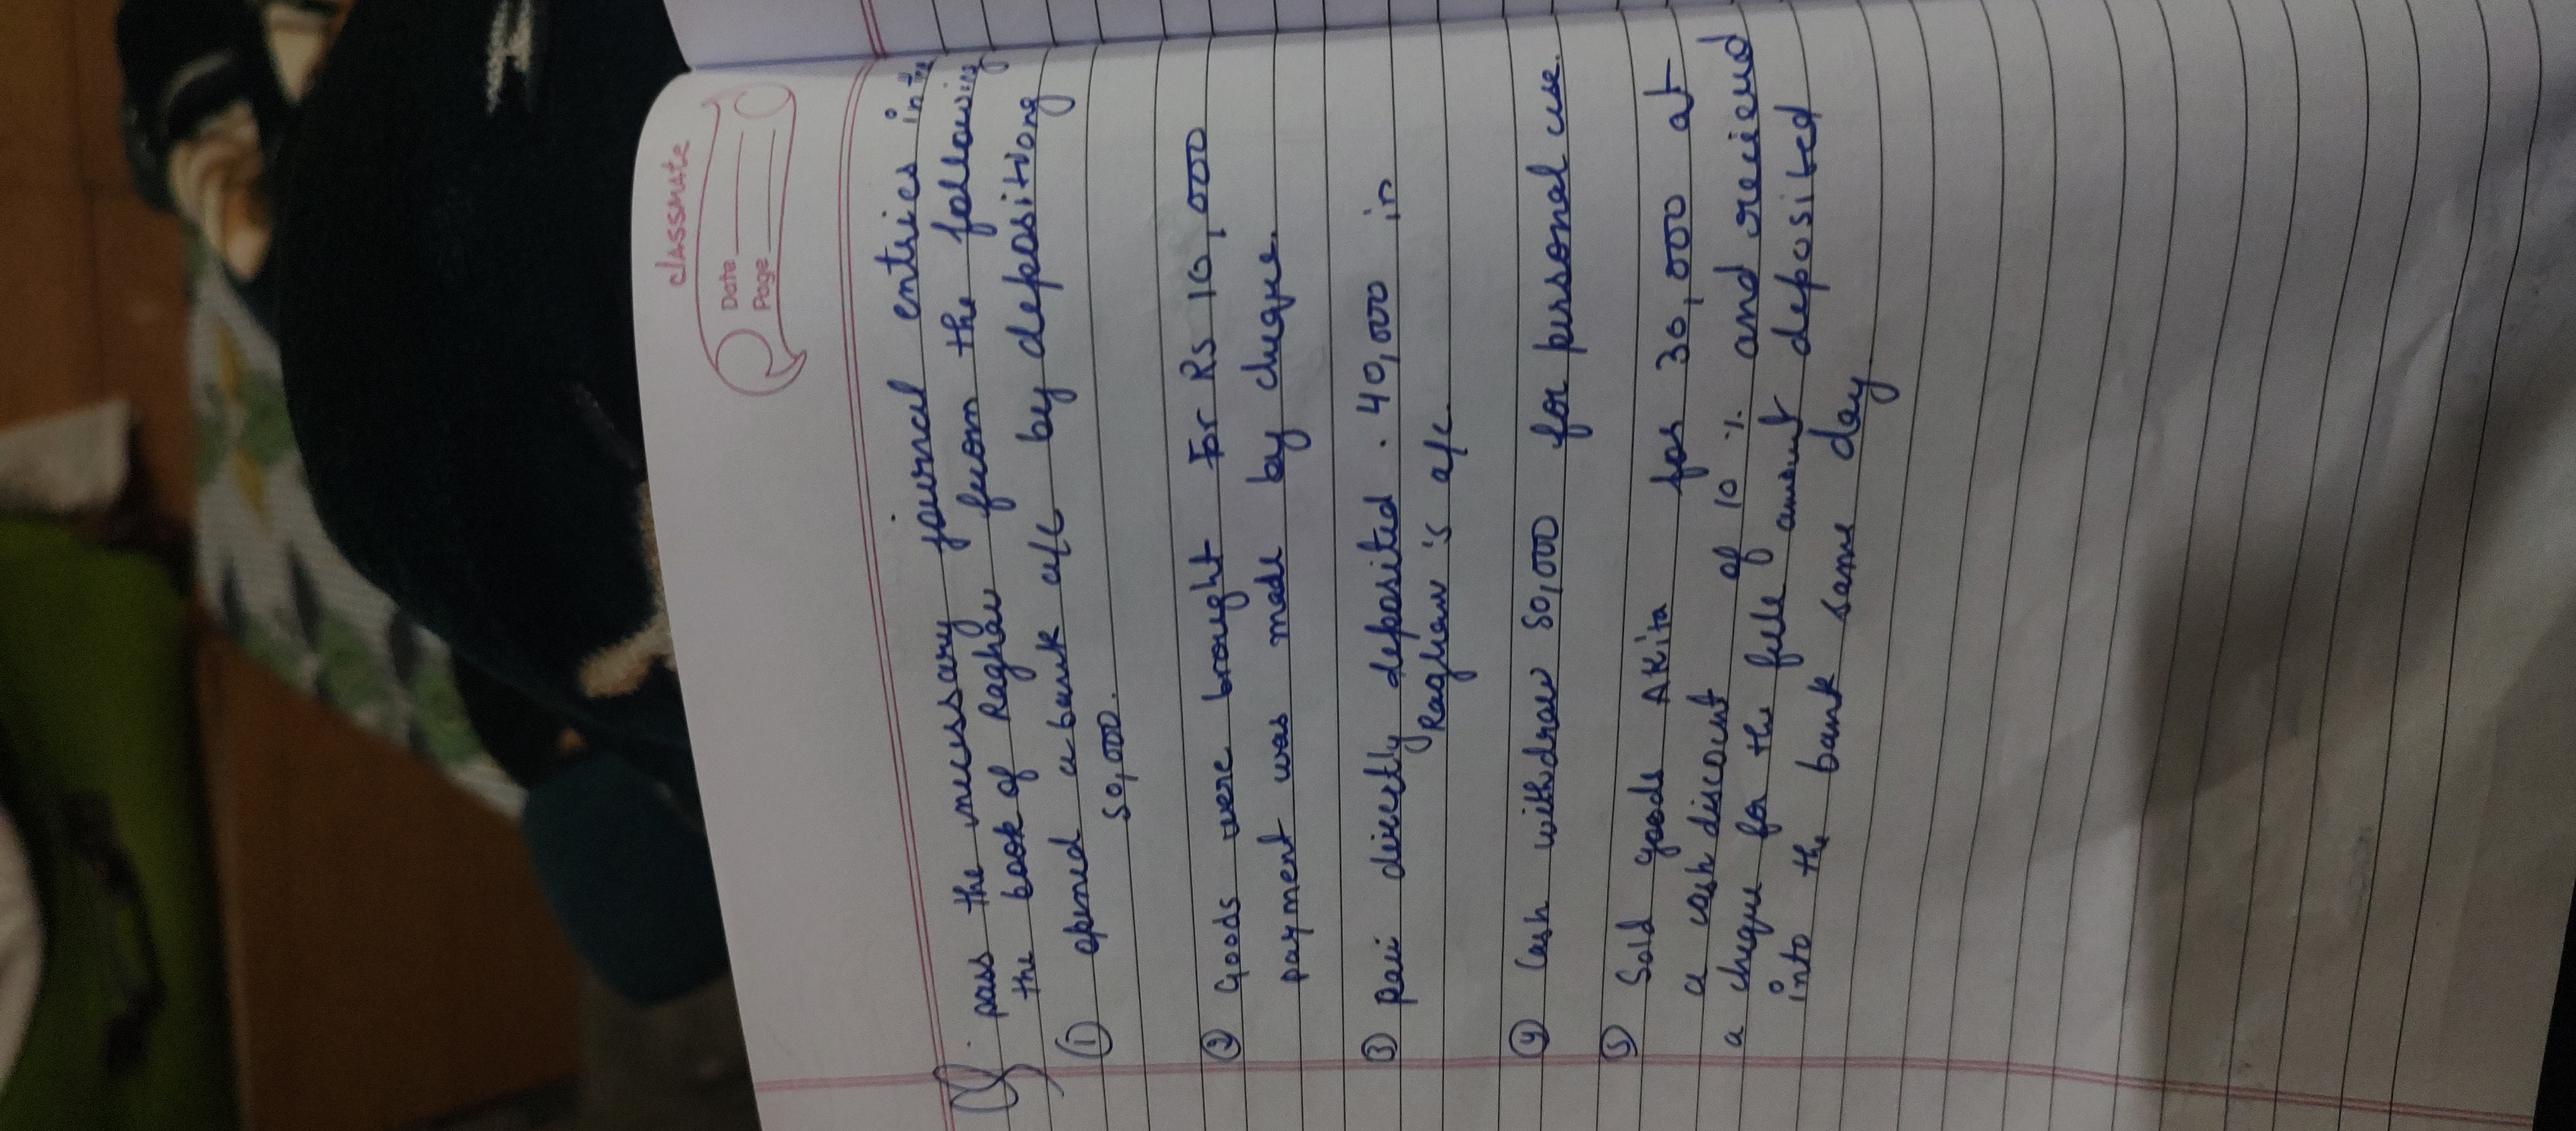 classmate
Date
Page
Q. pass the necessary journal entries in the
the book of Raghav from the following
① opened a bank a/c by depositiong
50,000.
② Goods were brought For Rs 10,000
payment was made by cheque.
③ Ravi directly deposited . 40,000 in
Raghav's a/c
④ Cash withdraw 50,000 for personal use.
⑤ Sold goods AKita for 30,000 at
a cash discount of 10 % and recieved
a cheque for the full amount deposited
into the bank same day